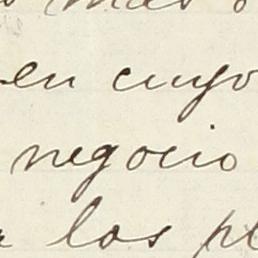 mas
en cuyo
negocio
los